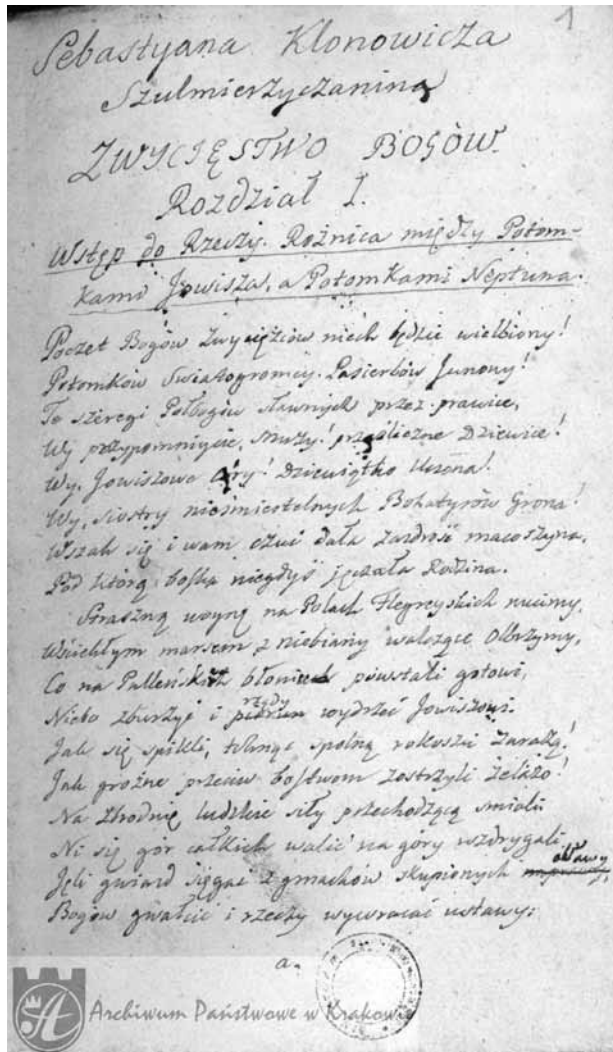 1
Sebastyana Klonowicza
Szulmierzyczanina
ZWYCIĘSTWO BOGÓW.
Rozdział I.
Wstęp do Rzeczy. Rożnica między Potom-
kami Jowisza, a Potomkami Neptuna.
Poczet Bogów Zwyciężców niech będzie wielbiony!
Potomków Swiatogromcy. Pasierbów Junony!
Te szeregi Półbogów sławnych przez prawice,
Wy przypomniycie, Muzy! prześliczne Dziewice!
Wy, Jowiszowe Córy! Dziewiątko Uczona!
Wy, siostry niesmiertelnych Bohatyrów Grona!
Wszak się i wam czuć dała zazdrość macoszyna,
Pod którą boska niegdyś jęczała Rodzina.
Straszną woynę na Polach Flegreyskich nucimy,
Wściekłym marsem z niebiany walczące Olbrzymy,
Co na Palleńskich błoniach powstali gotowi,
rządy
Niebo zburzyć i wydrzeć Jowiszowi.
Jak się spikli, tchnąc spolną rokoszu zarazą!
Jak groźne przeciw bostwom zostrzyli żelazo!
Na zbrodnię ludzkie siły przechodzącą smiali
Ni się gór całkich walić na góry wzdrygali.
obławy
Jęli gwiazd sięgać z gmachów skupionych
Bogów gwałcić i rzeczy wywracać ustawy:
a.
Archiwum Państwowe w Krakowie